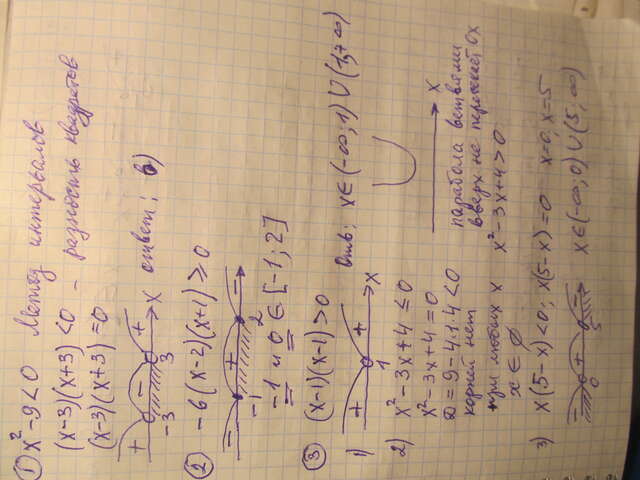 ① x² - 9 < 0 Метод интервалов
(x-3)(x+3) < 0 - разность квадратов
(x-3)(x+3) = 0
+ - + x
-3 3
ответ: в)
② -6(x-2)(x+1) ≥ 0
- + -
-1 2
-1 и 0 ∈ [-1; 2]
③ (x-1)(x-1) > 0
1) + + x
1
Отв: x ∈ (-∞; 1) ∪ (1; +∞)
2) x² - 3x + 4 ≤ 0
x² - 3x + 4 = 0
D = 9 - 4·1·4 < 0
корней нет
x
парабола ветвями
вверх не пересекает ox
при любых x x² - 3x + 4 > 0
x ∈ ∅
3) x(5-x) < 0; x(5-x) = 0 x=0, x=5
- + -
0 5
x ∈ (-∞; 0) ∪ (5; ∞)